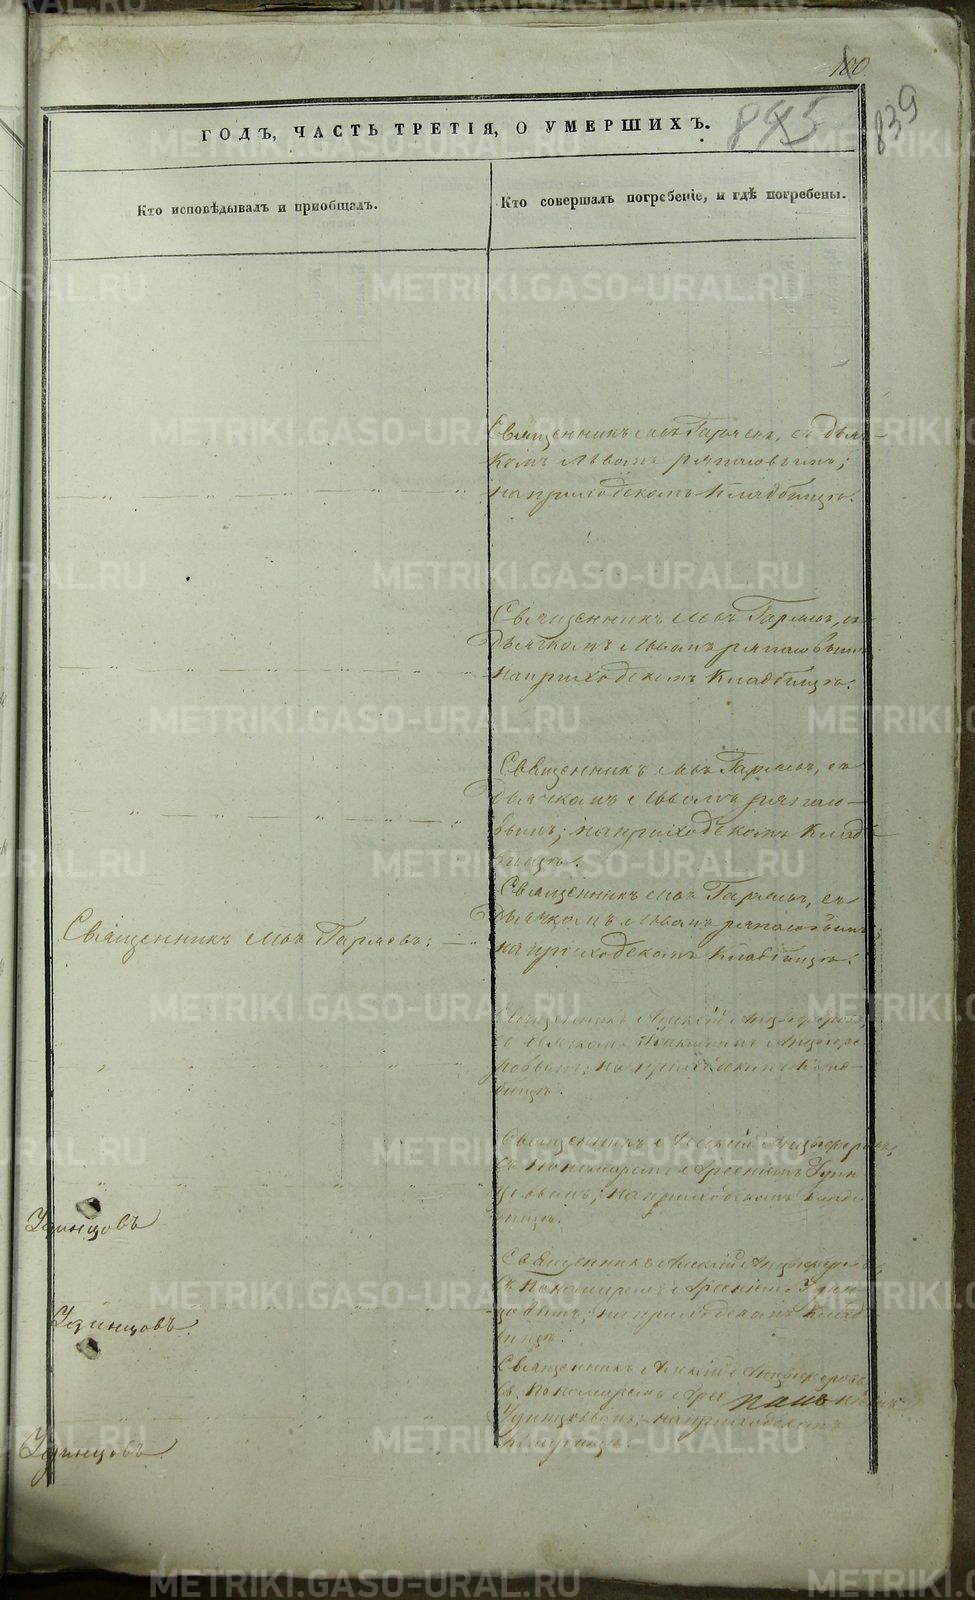 100
845
839
ГОДЪ, ЧАСТЬ ТРЕТІЯ, О УМЕРШИХЪ.
Кто исповѣдывалъ и пріобщалъ.
Кто совершалъ погребеніе, и гдѣ погребены.
Священникъ Левъ Гаряевъ, съ дьяч-
комъ Львомъ
на приходскомъ кладбищѣ.
Священникъ Левъ Гаряевъ, съ
дьячкомъ Львомъ
на приходскомъ кладбищѣ.
Священникъ Левъ Гаряевъ, съ
дьячкомъ Львомъ
на приходскомъ клад-
бищѣ.
Священникъ Левъ Гаряевъ;
Священникъ Левъ Гаряевъ, съ
дьячкомъ Львомъ
на приходскомъ кладбищѣ.
Священникъ Алексій Анцыферовъ,
съ дьячкомъ Анцыфе-
ровымъ; на приходскомъ клад-
бищѣ.
Священникъ Алексій Анцыферовъ,
съ пономаремъ Арсеніемъ Удин-
цовымъ; на приходскомъ клад-
бищѣ.
Удинцовъ
Священникъ Алексій Анцыферовъ,
съ пономаремъ Арсеніемъ Удин-
цовымъ; на приходскомъ клад-
бищѣ.
Удинцовъ
Священникъ Алексій Анцыферовъ
съ пономаремъ
Удинцовымъ; на приходскомъ
Удинцовъ
METRIKI.GASO-URAL.RU